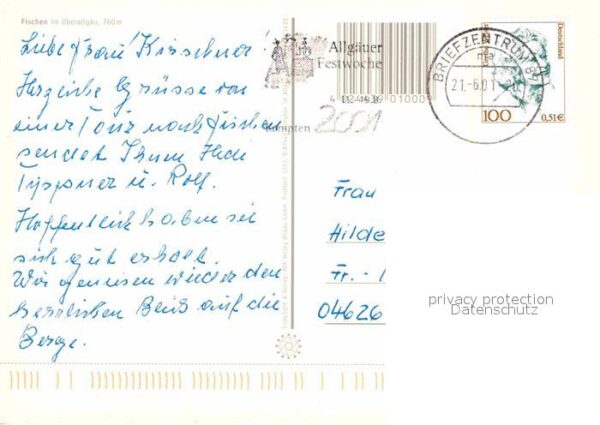 Fischen im Oberallgäu, 760m
Liebe Frau Kirschner!
Herzliche Grüsse von
einer Tour nach Fischen
sendet Ihnen Hedi
Tippner u. Rolf.
Hoffentlich haben sie
sich gut erholt.
Wir geniesen wieder den
herrlichen Blick auf die
Berge.
Allgäuer
Festwoche
Kempten
2001
BRIEFZENTRUM
21.-6.01
Deutschland
100
0,51€
Frau
Hilde
Fr. - 
04626
privacy protection
Datenschutz